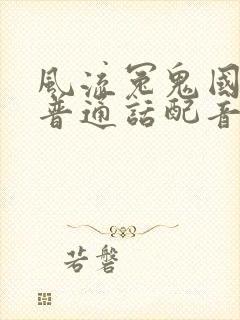 風流冤鬼國
普通話配音
若磐